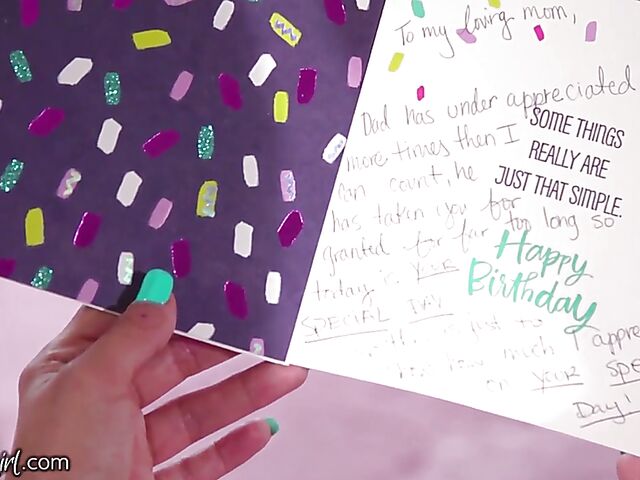 To my loving mom,
Dad has under appreciated
more times then I
can count, he
has taken you for
granted for far too long so
today is your
SPECIAL DAY
just to
how much I appre
on your SPE
Day!
SOME THINGS
REALLY ARE
JUST THAT SIMPLE.
Happy
Birthday
irl.com